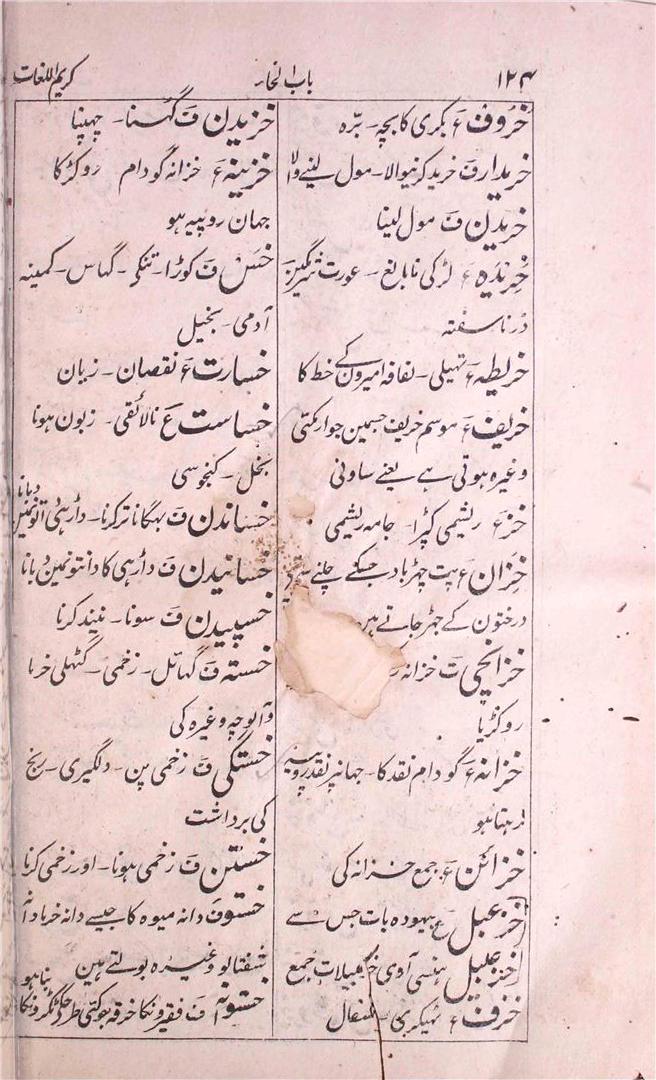 ۱۲۴ باب الخاء کریم اللغات
خروف ع بکری کا بچہ - برّہ
خریدار ف خرید کرنیوالا - مول لینے والا
خریدن ف مول لینا
خریدہ ع لڑکی نابالغ - عورت شرمگین
در ناسفتہ
خریطہ ع تھیلی - لفافہ امیرون کے خط کا
خریف ع موسم خریف جسمین جوار مکئی
وغیرہ ہوتی ہے یعنے ساونی
خز ع ریشمی کپڑا - جامہ ریشمی
خزان ع پت جھڑ باد جسکے چلنے سے
درختون کے جھڑ جاتے ہین
خزانچی ت خزانہ
روکڑیا
خزانہ ع گودام نقد کا - جہانپر نقد روپیہ
رہتا ہو
خزائن ع جمع خزانہ کی
خزعبل ع بیہودہ بات جس سے
خزعبیل ہنسی آوی خزعبیلات جمع
خزف ع ٹھیکری - سفال
خزیدن ف گھسنا - چھپنا
خزینہ ع خزانہ گودام روکڑ کا
جہان روپیہ ہو
خس ف کوڑا - تنکی - گھاس - کمینہ
آدمی - بخیل
خسارت ع نقصان - زیان
خساست ع نالائقی - زبون ہونا
بخل - کنجوسی
خساندن ف بھگانا تر کرنا - داڑہی دانتونمین دبانا
خسانیدن ف داڑہی کا دانتونمین دبانا
خسپیدن ف سونا - نیند کرنا
خستہ ف گھائل - زخمی - گٹھلی خرما
و آلوچہ وغیرہ کی
خستگی ف زخمی پن - دلگیری - رنج
کی برداشت
خستن ف زخمی ہونا - اور زخمی کرنا
خستو ف دانہ میوہ کا جیسے دانہ خرما دانہ
شفتالو وغیرہ بولتے ہین
خستوانہ ف فقیرونکا خرقہ جو کئی طرحکے ٹکڑونکا بنا ہو